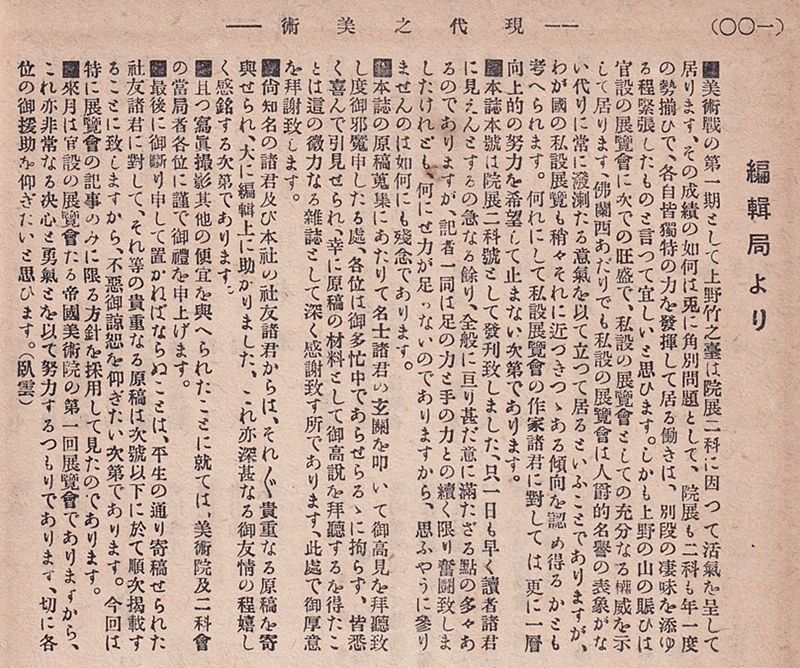 (一〇〇)
現代之美術
編輯局より
■美術戰の第一期として上野竹之臺は院展二科に因つて活氣を呈して
居ります、その成績の如何は兎に角別問題として、院展も二科も年一度
の勢揃ひで、各自皆獨特の力を發揮して居る働きは、別段の凄味を添ゆ
る程緊張したものと言つて宜しいと思ひます。しかも上野の山の賑ひは
官設の展覽會に次での旺盛で、私設の展覽會としての充分なる權威を示
して居ります、佛蘭西あだりでも私設の展覽會は人爵的名譽の表象がな
い代りに常に潑溂たる意氣を以て立つて居るといふことでありますが、
わが國の私設展覽も稍々それに近づきつゝある傾向を認め得るかとも
考へられます。何れにして私設展覽會の作家諸君に對しては更に一層
向上的の努力を希望して止まない次第であります。
■本誌本號は院展二科號として發刊致しました、只一日も早く讀者諸君
に見えんとするの急なる餘り、全般に亘り甚だ意に滿たざる點の多々あ
るのでありますが、記者一同は足の力と手の力との續く限り奮鬪致しま
したけれども、何にせ力が足らないのでありますから、思ふやうに參り
ませんのは如何にも殘念であります。
■本誌の原稿蒐集にあたりて名士諸君の玄關を叩いて御高見を拜聽致
し度御邪魔申したる處、各位は御多忙中であらせらるゝに拘らず、皆悉
く喜んで引見せられ、幸に原稿の材料として御高說を拜聽するを得たこ
とは這の微力なる雜誌として深く感謝致す所であります、此處で御厚意
を拜謝致します。
■尙知名の諸君及び本社の社友諸君からは、それ〲貴重なる原稿を寄
與せられ、大に編輯上に助かりました、これ亦深甚なる御友情の程嬉し
く感銘する次第であります。
■且つ寫眞撮影其他の便宜を與へられたことに就ては、美術院及二科會
の當局者各位に謹で御禮を申上げます。
■最後に御斷り申して置かねばならぬことは、平生の通り寄稿せられた
社友諸君に對して、それ等の貴重なる原稿は次號以下に於て順次揭載す
ることに致しますから、不惡御諒恕を仰ぎたい次第であります。今回は
特に展覽會の記事のみに限る方針を採用して見たのであります。
■來月は官設の展覽會たる帝國美術院の第一回展覽會でありますから、
これ亦非常なる决心と勇氣とを以て努力するつもりであります、切に各
位の御援助を仰ぎたいと思ひます。(臥雲)